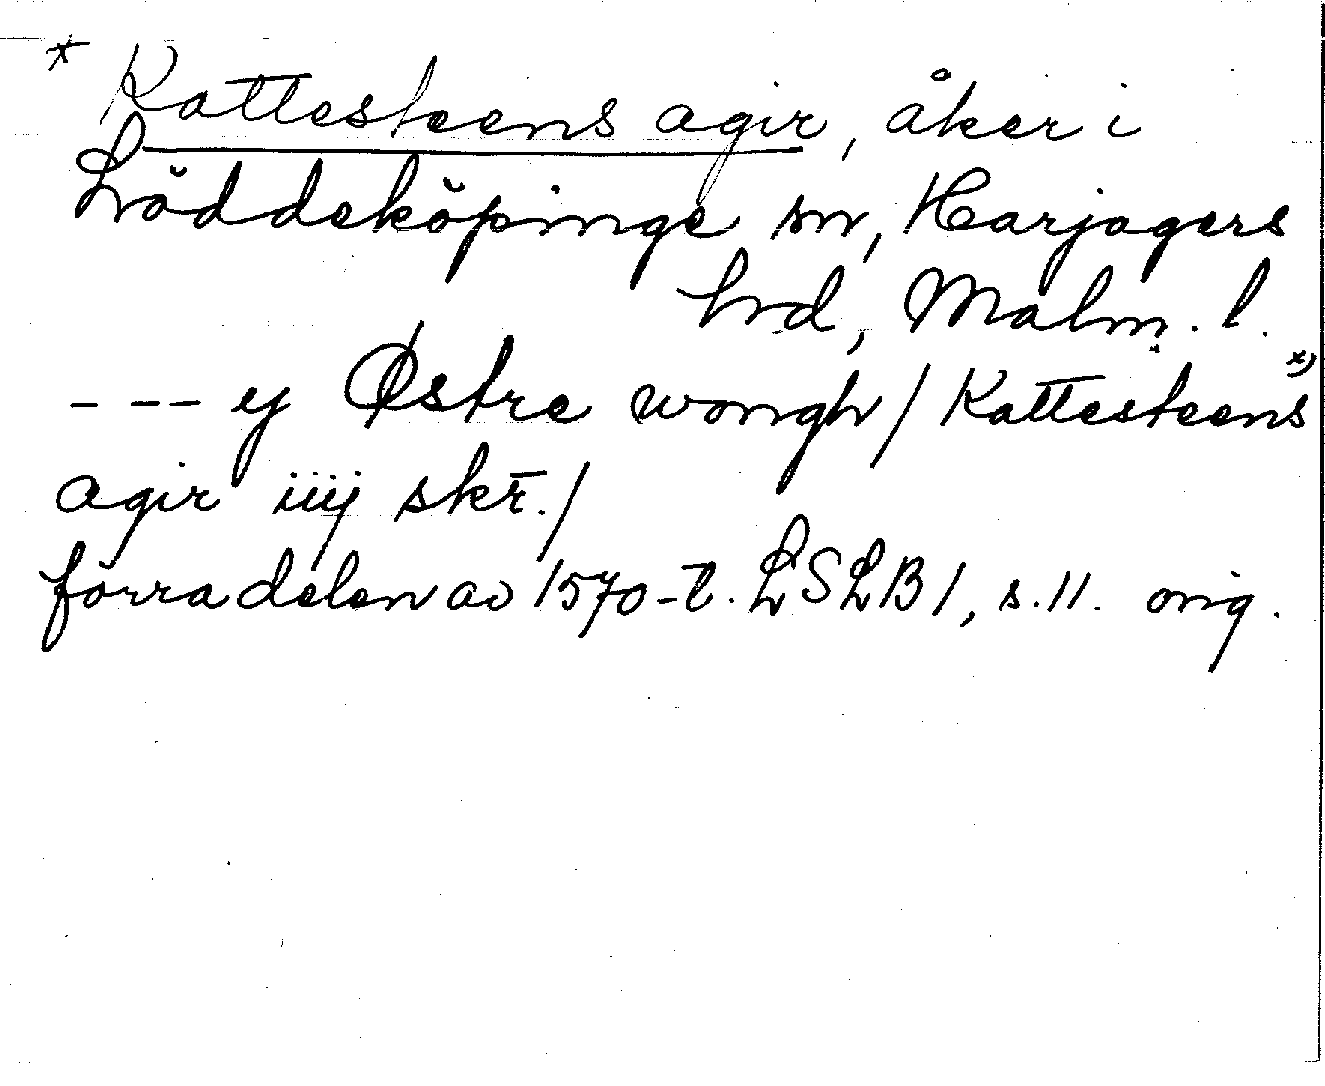 * Kattesteens agir, åker i
Löddeköpinge sn, Harjagers
hrd, Malm. l.
- -- y Østre wongh / Kattesteens x)
agir iiij skr̄. /
förra delen av 1570-t. LSLB 1, s. 11. orig.